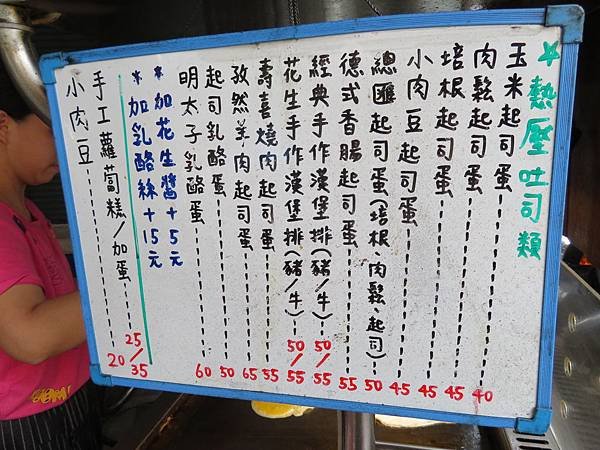 *熱壓吐司類
玉米起司蛋------40
肉鬆起司蛋------45
培根起司蛋------45
小肉豆起司蛋------45
總匯起司蛋(培根、肉鬆、起司)--50
德式香腸起司蛋------55
經典手作漢堡排(豬/牛)--50/55
花生手作漢堡排(豬/牛)--50/55
壽喜燒肉起司蛋------55
孜然羊肉起司蛋------65
起司乳酪蛋------50
明太子乳酪蛋------60
*加花生醬+5元
*加乳酪絲+15元
手工蘿蔔糕/加蛋------25/35
小肉豆------20